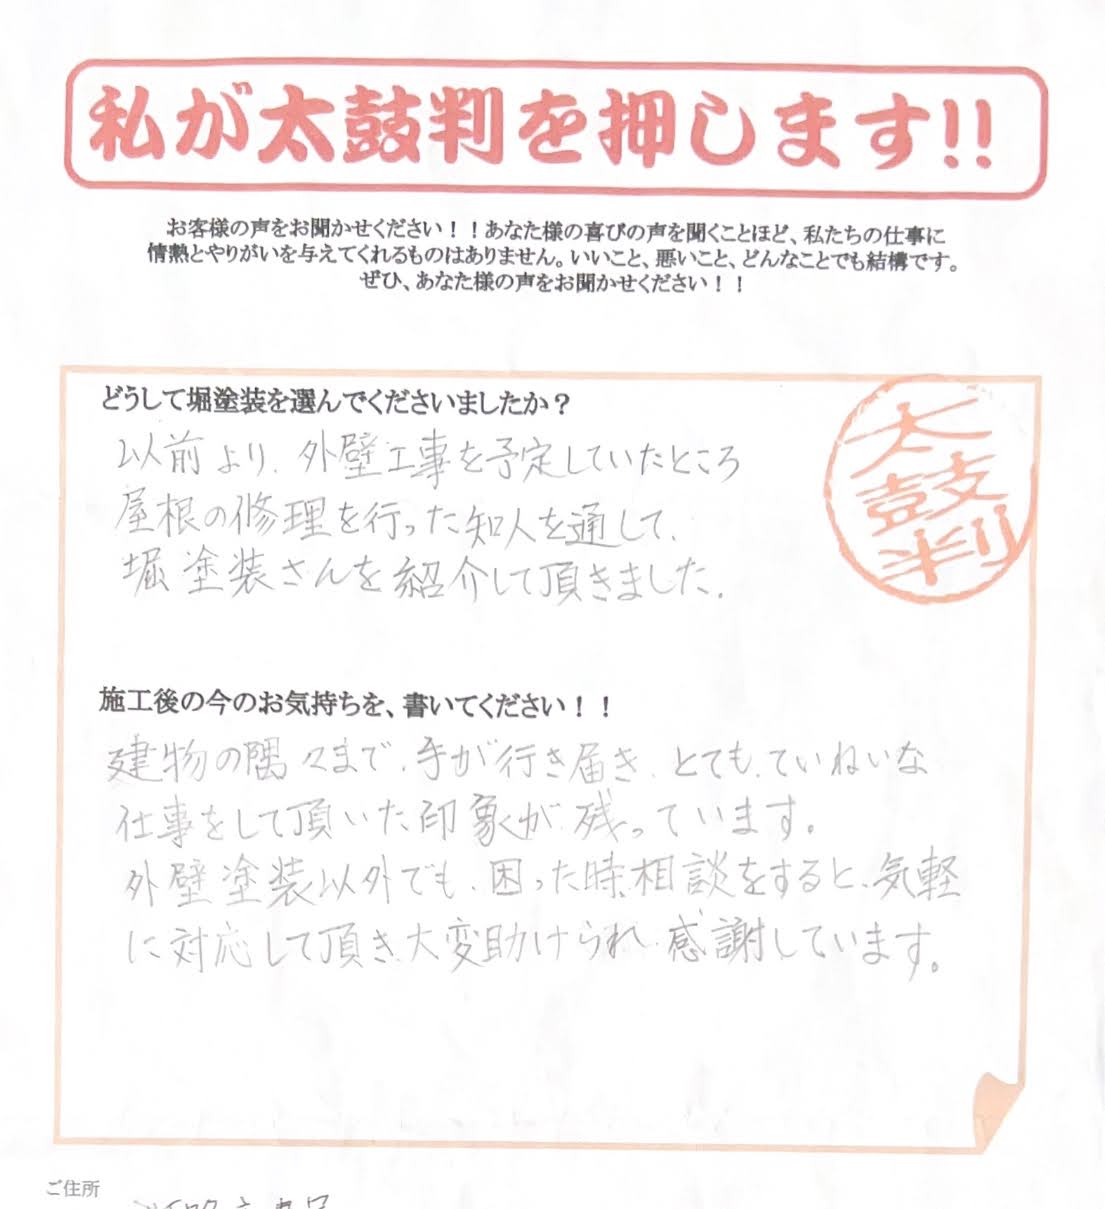 私が太鼓判を押します!!
お客様の声をお聞かせください！！あなた様の喜びの声を聞くことほど、私たちの仕事に
情熱とやりがいを与えてくれるものはありません。いいこと、悪いこと、どんなことでも結構です。
ぜひ、あなた様の声をお聞かせください！！
どうして堀塗装を選んでくださいましたか？
太鼓判
以前より、外壁工事を予定していたところ
屋根の修理を行った知人を通して、
堀塗装さんを紹介して頂きました。
施工後の今のお気持ちを、書いてください！！
建物の隅々まで、手が行き届き、とても、ていねいな
仕事をして頂いた印象が、残っています。
外壁塗装以外でも、困った時、相談をすると、気軽
に対応して頂き、大変助けられ、感謝しています。
ご住所